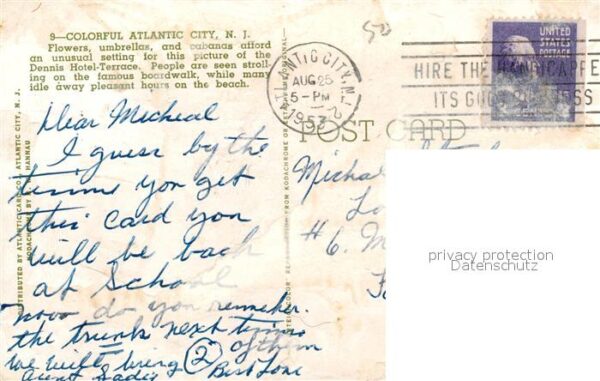 9—COLORFUL ATLANTIC CITY, N. J.
Flowers, umbrellas, and cabanas afford
an unusual setting for this picture of the
Dennis Hotel-Terrace. People are seen stroll-
ing on the famous boardwalk, while many
idle away pleasant hours on the beach.
Dear Micheal
I guess by the
time you get
this card you
will be back
at School
now do you
the trunk next
we will bring 2 of them
Best Love
ATLANTIC CITY, N.J.
AUG 25
5-PM
1953
UNITED
STATES
POSTAGE
HIRE THE HANDICAPPE
ITS GOOD
POST CARD
Michae
Lo
#6. M
privacy protection
Datenschutz
DISTRIBUTED BY ATLANTIC CARD CO., ATLANTIC CITY, N. J.
KODACHROME BY HANNAU